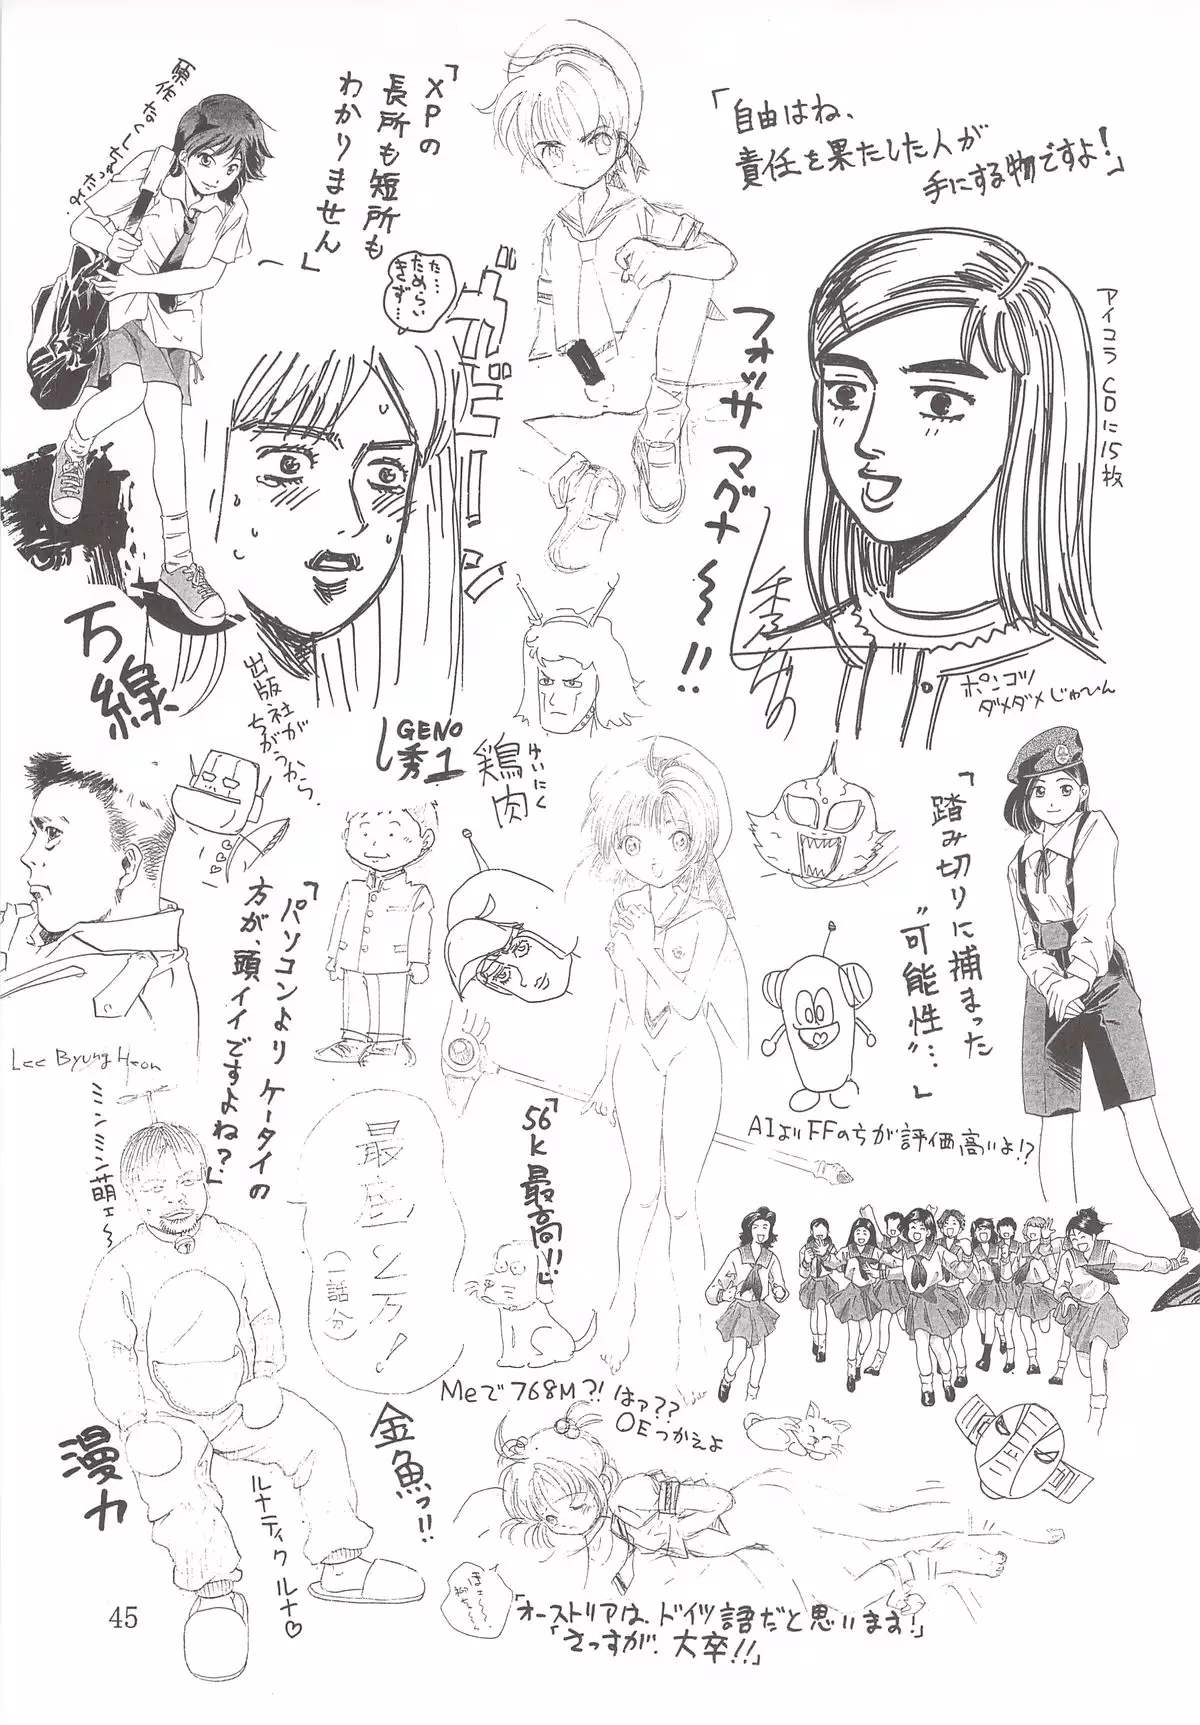 「XPの
長所も短所も
わかりません」
「自由はね、
責任を果たした人が
手にする物ですよ!」
た…
ためらい
きず…
ガビーン
フォッサマグナ〜!!
アイコラCDに15枚
ポンコツ
ダメダメじゃぴん
万線
出版社が
ちがうから。
GENO
秀1
鶏肉
けいにく
「踏み切りに捕まった
"可能性"…」
「パソコンよりケータイの
方が、頭イイですよね?」
Lee Byung Heon
ミンミンミン萌ェ〜
「56K最高!!」
AIよりFFのちが評価高いよ!?
(一話分)
MeでT68M?!はァ??
OEつかえよ
金魚っ!!
漫力
ルナティクルナ♡
「オーストリアは、ドイツ語だと思います!」
「さっすが、大卒!!」
45